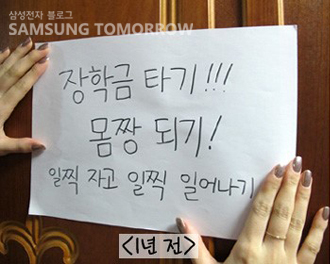 삼성전자 블로그
SAMSUNG TOMORROW
장학금 타기!!!
몸짱 되기!
일찍 자고 일찍 일어나기
<1년 전>